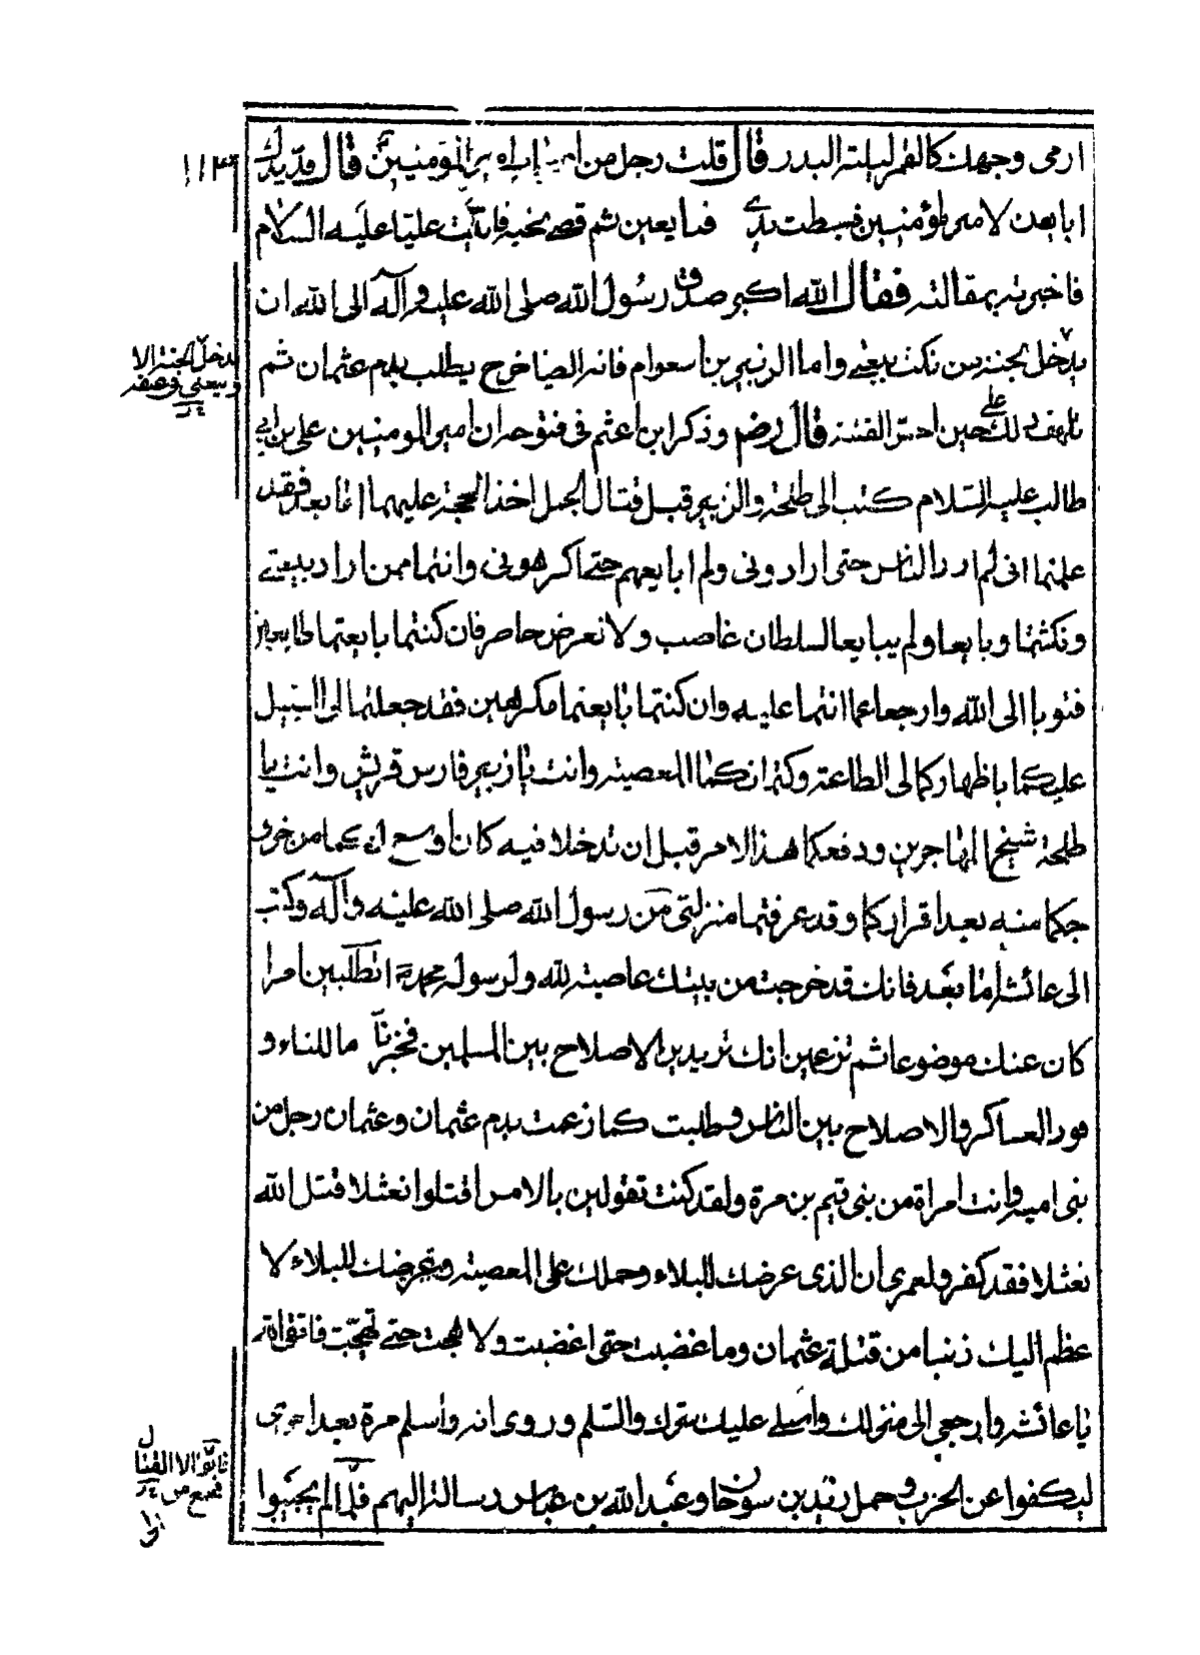 ارمى وجهك كالقمر ليلة البدر قال قلت رجل من اصحاب امير المؤمنين قال فمد يدك
ابايعك لامير المؤمنين فبسطت يدي فبايعني ثم قضى نحبه فاتيت عليا عليه السلام
فاخبرته بمقالته فقال الله اكبر صدق رسول الله صلى الله عليه وآله ابى الله ان
يدخل الجنة من نكث بيعتي واما الزبير بن العوام فانه ايضا خرج يطلب بدم عثمان ثم
على ذلك حين احس الفتنة قال رضه وذكر ابن اعثم فى فتوحه ان امير المومنين على بن ابي
طالب عليه السلام كتب الى طلحة والزبير قبل قتال الجمل اخذ الحجة عليهما اما بعد فقد
علمتما انى لم ارد الناس حتى ارادونى ولم ابايعهم حتى اكرهونى وانتما ممن اراد بيعتي
ونكثتما وبايعا ولم يبايعا لسلطان غاصب ولا لعرض حاضر فان كنتما بايعتما طايعين
فتوبا الى الله وارجعا عما انتما عليه وان كنتما بايعتما مكرهين فقد جعلتما لى السبيل
عليكما باظهاركما لى الطاعة وكتمانكما المعصية وانت يا زبير فارس قريش وانت يا
طلحة شيخ المهاجرين ودفعكما هذا الامر قبل ان تدخلا فيه كان اوسع لكما من خرو
جكما منه بعد اقراركما وقد عرفتما منزلتى من رسول الله صلى الله عليه وآله وكتب
الى عائشة اما بعد فانك قد خرجت من بيتك عاصية لله ولرسوله محمد تطلبين امرا
كان عنك موضوعا ثم تزعمين انك تريدين الاصلاح بين المسلمين فخبرنا ما للنساء و
قود العساكر والاصلاح بين الناس وطلبت كما زعمت بدم عثمان وعثمان رجل من
بنى اميه وانت امراة من بنى تيم بن مرة ولقد كنت تقولين بالامس اقتلوا نعثلا قتل الله
نعثلا فقد كفر ولعمرى ان الذى عرضك للبلاء وحملك على المعصية وتعرضك للبلاء لا
عظم اليك ذنبا من قتلة عثمان وما غضبت حتى اغضبت ولا هجت حتى هيجت فاتقى الله
يا عائشه وارجعى الى منزلك واسبلى عليك سترك والسلم وروى انه راسلم مرة بعد اخرى
ليكفوا عن الحرب وحمل زيد بن صوحان وعبد الله بن عباس رسالة اليهم فلما لم يجيبوا
١١٣
يدخل الجنة الا
وبيعتي فى عنقه